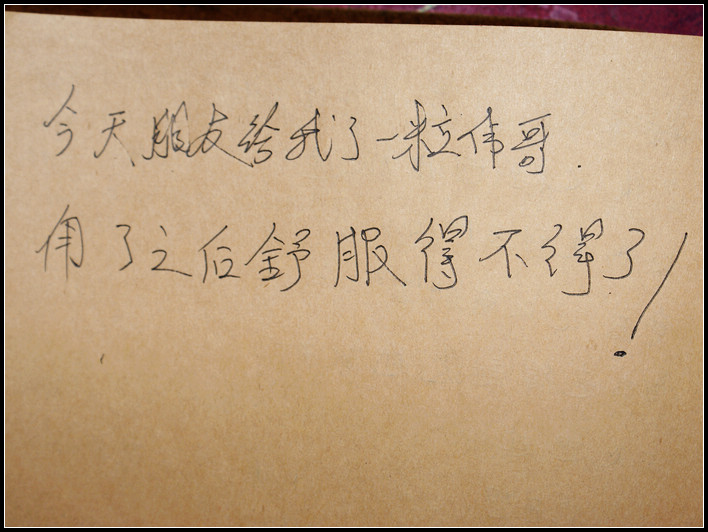 今天朋友给我了一粒伟哥.
用了之后舒服得不得了!